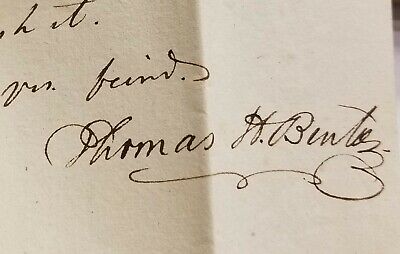 sh it.
yrs. friend.
Thomas H. Benton